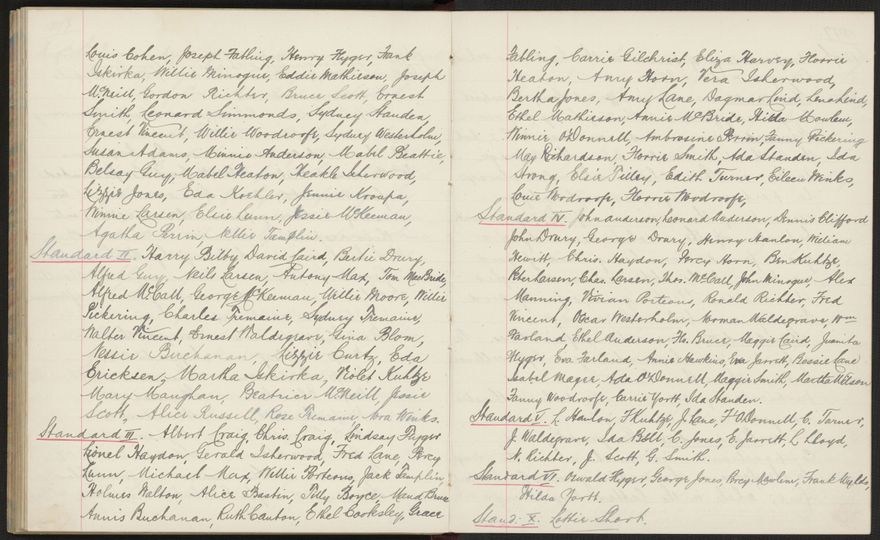 Louis Cohen, Joseph Fabling, Henry Hyger, Frank
Iskirka, Willie Minogue, Eddie Mathieson, Joseph
McNeill, Gordon Richter, Bruce Scott, Ernest
Smith, Leonard Simmonds, Sydney Standen,
Ernest Vincent, Willie Woodroofe, Sydney Westerholm,
Susan Adams, Minnie Anderson, Mabel Beattie,
Belsay Guy, Mabel Heaton, Isherwood,
Lizzie Jones, Eda Koehler, Jennie
Winnie Larsen, Elsie Lunn, Jessie McKeeman,
Agatha Perrin, Nellie Tamplin.
Standard II. Harry Bilby David Caird, Bertie Drury,
Alfred Guy, Neils Larsen, Antony Max, Tom MacBride,
Alfred McCall, George McKeeman, Willie Moore, Willie
Pickering, Charles Tremaine, Sydney Tremaine,
Walter Vincent, Ernest Waldegrave, Gina Blom,
Nessie Buchanan, Lizzie Curtz, Eda
Ericksen, Martha Iskirka, Violet Kuhtze
Mary Maughan, Beatrice McNeill, Jessie
Scott, Alice Russell, Rose Tremaine Nora Winks.
Standard III. Albert Craig, Chris. Craig, Lindsay Hyger
Lionel Haydon, Gerald Isherwood, Fred Lane, Percy
Lunn, Michael Max, Willie Porteous, Jack Tamplin,
Holmes Walton, Alice Bastin, Tilly Boyce, Maud Bruce
Annie Buchanan, Ruth Canton, Ethel Cooksley, Grace
Fabling, Carrie Gilchrist, Eliza Harvey, Florrie
Heaton, Amy Horn, Vera Isherwood,
Bertha Jones, Amy Lane, Dagmar Lind, Lena Lind,
Ethel Mathieson, Annie McBride, Mowlem,
Winnie O'Donnell, Ambrosine Perrin, Fanny Pickering
May Richardson, Florrie Smith, Ada Standen, Ida
Strong, Elsie Tilley, Edith Turner, Eileen Winks,
Louie Woodroofe, Florrie Woodroofe,
Standard IV. John Anderson, Leonard Anderson, Dennis Clifford
John Drury, George Drury, Henry Hanlon, William
Hewitt, Chris. Haydon, Percy Horn, Ben Kuhtze,
Peter Larsen, Chas. Larsen, Thos. McCall, John Minogue, Alex
Manning, Vivian Porteous, Ronald Richter, Fred
Vincent, Oscar Westerholm, Norman Waldegrave, Wm
Farland, Ethel Anderson, Flo. Bruce, Maggie Caird, Juanita
Hyger, Eva Farland, Annie Hawkins, Eva Jarrett, Bessie Lane
Isabel Mayer, Ada O'Donnell, Maggie Smith, Martha Wilson
Fanny Woodroofe, Carrie Yortt, Ida Standen.
Standard V. L. Hanlon, F Kuhtze, J. Lane, F O'Donnell, C. Turner,
J. Waldegrave, Ida Bell, C. Jones, E. Jarrett, L. Lloyd,
N. Richter, J. Scott, G. Smith.
Standard VI. Oswald Hyger, George Jones, Percy Mowlem, Frank Wylds,
Hilda Yortt.
Stand. X. Lottie Short.